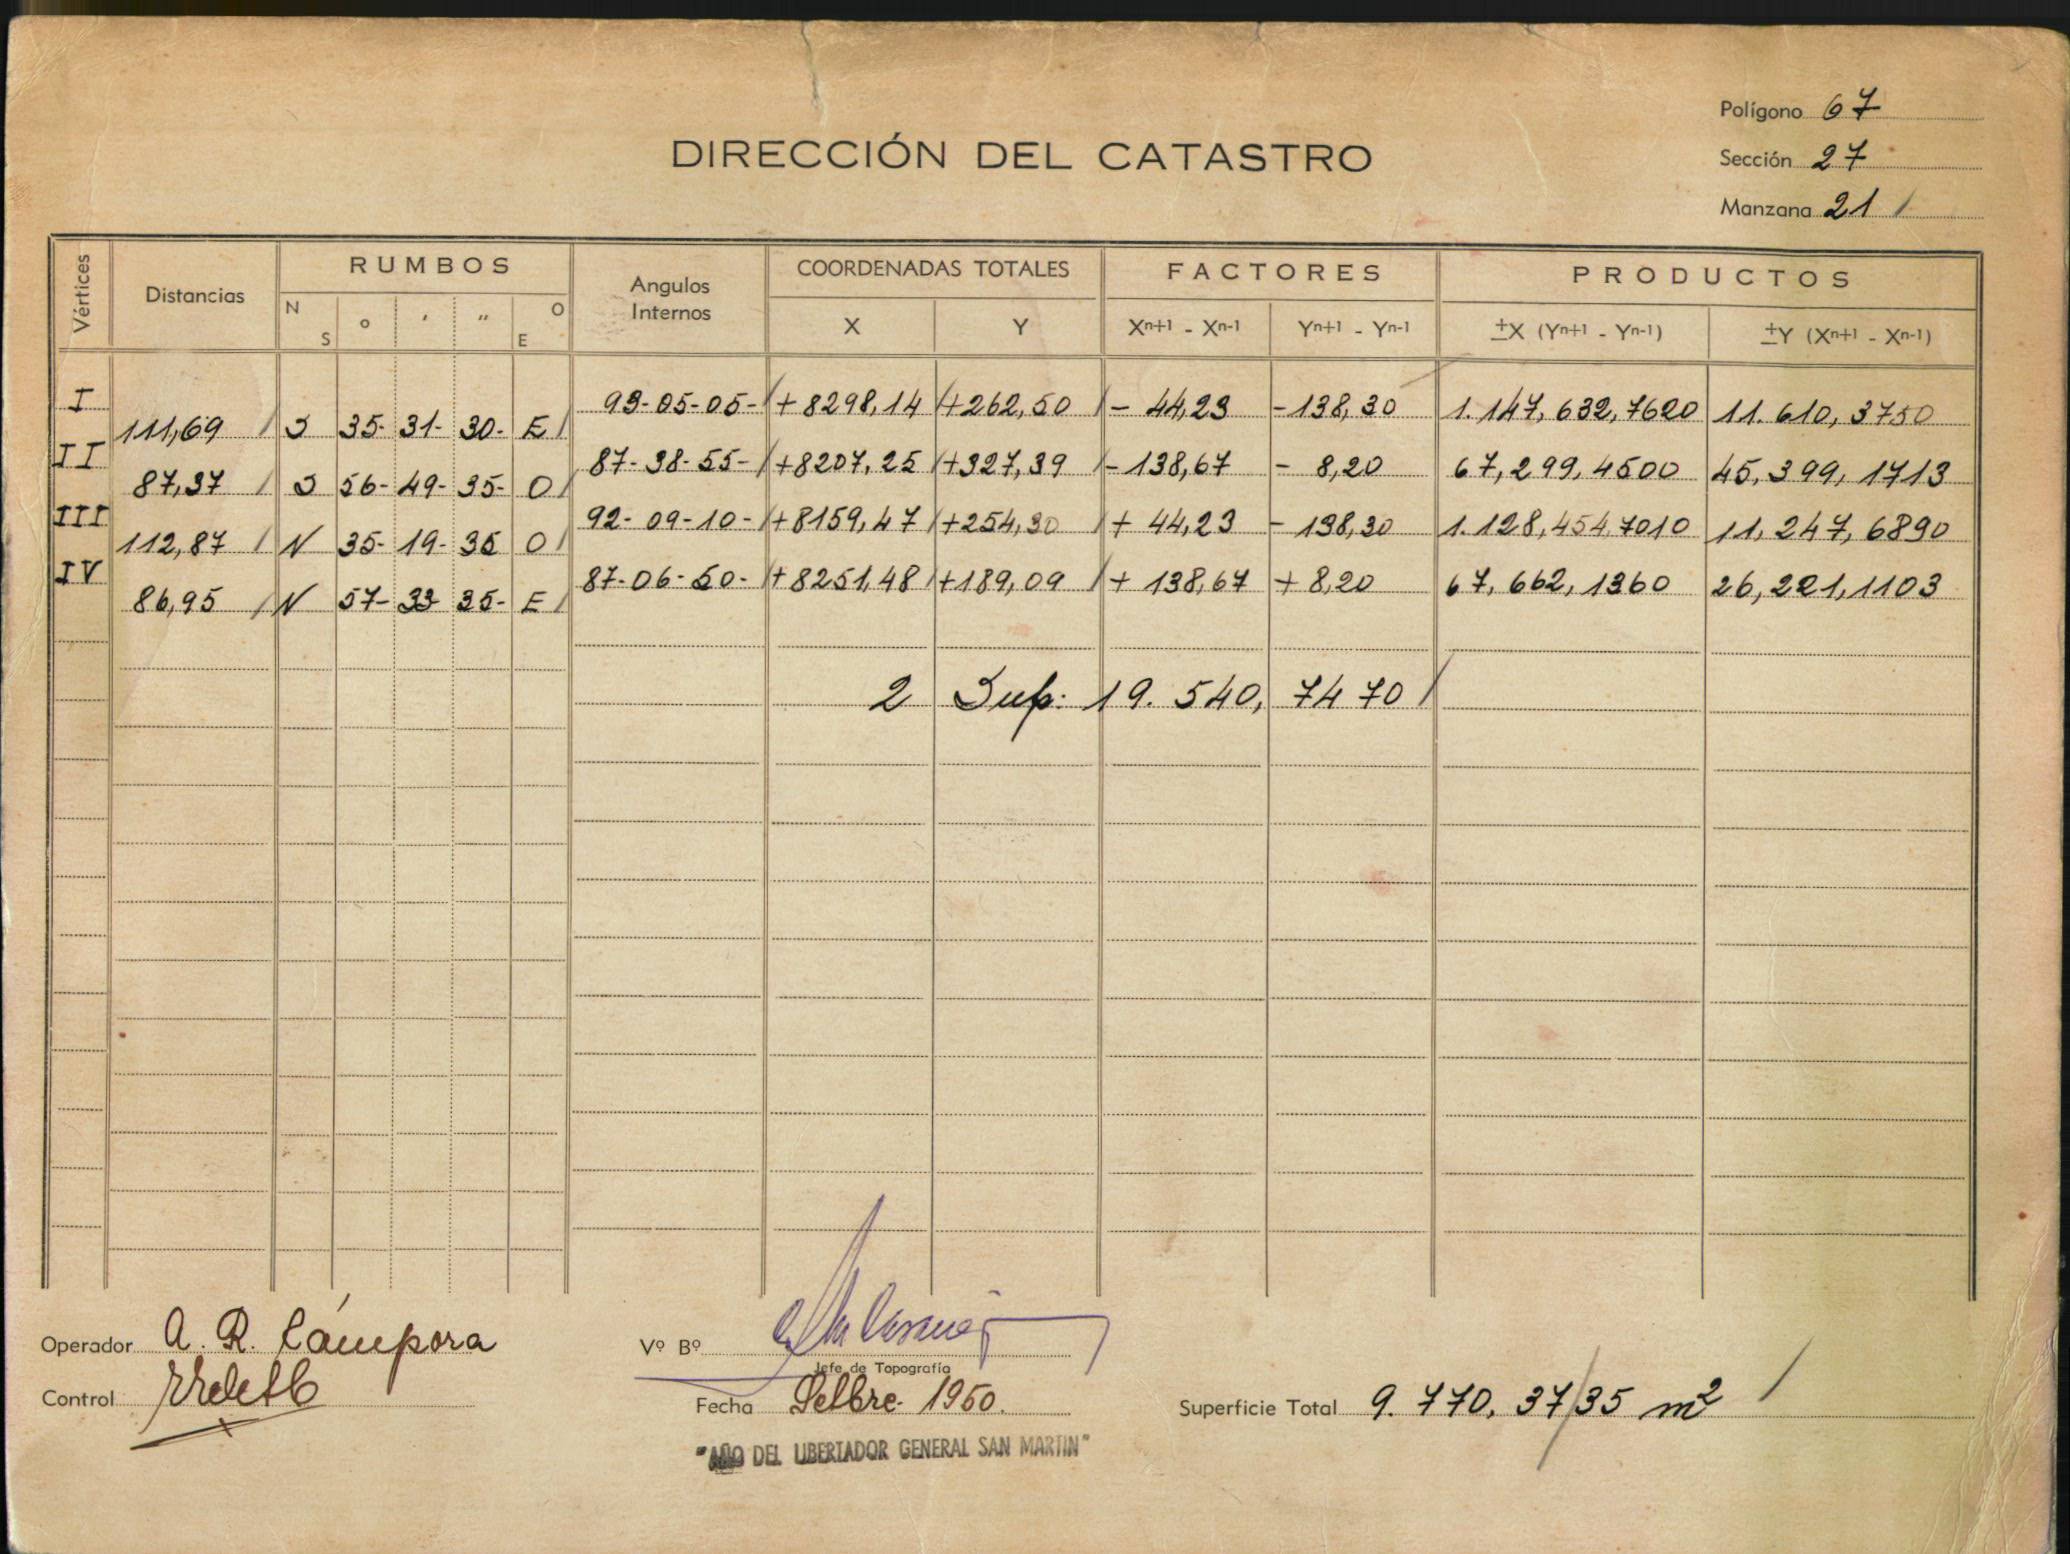 Polígono 67
DIRECCIÓN DEL CATASTRO
Sección 27
Manzana 21 /
Vértices Distancias RUMBOS Angulos Internos COORDENADAS TOTALES FACTORES PRODUCTOS
N S ° ′ ″ O E X Y Xn+1 - Xn-1 Yn+1 - Yn-1 ±X (Yn+1 - Yn-1) ±Y (Xn+1 - Xn-1)
I 93-05-05- / +8298,14 / +262,50 / - 44,23 -138,30 1.147,632,7620 11.610,3750
111,69 / S 35- 31- 30- E /
II 87-38-55- / +8207,25 / +327,39 / -138,67 - 8,20 67,299,4500 45,399,1713
87,37 / S 56- 49- 35- O /
III 92-09-10- / +8159,47 / +254,30 / + 44,23 - 138,30 1.128,454,7010 11,247,6890
112,87 / N 35- 19- 35 O /
IV 87-06-50- / +8251,48 / +189,09 / + 138,67 + 8,20 67,662,1360 26,221,1103
86,95 / N 57- 33- 35- E /
2 Sup: 19.540,7470 /
Operador A. R. Cámpora
Vº Bº
Jefe de Topografía
Control
Fecha Setbre. 1950.
Superficie Total 9.770,37/35 m² /
"AÑO DEL LIBERTADOR GENERAL SAN MARTIN"